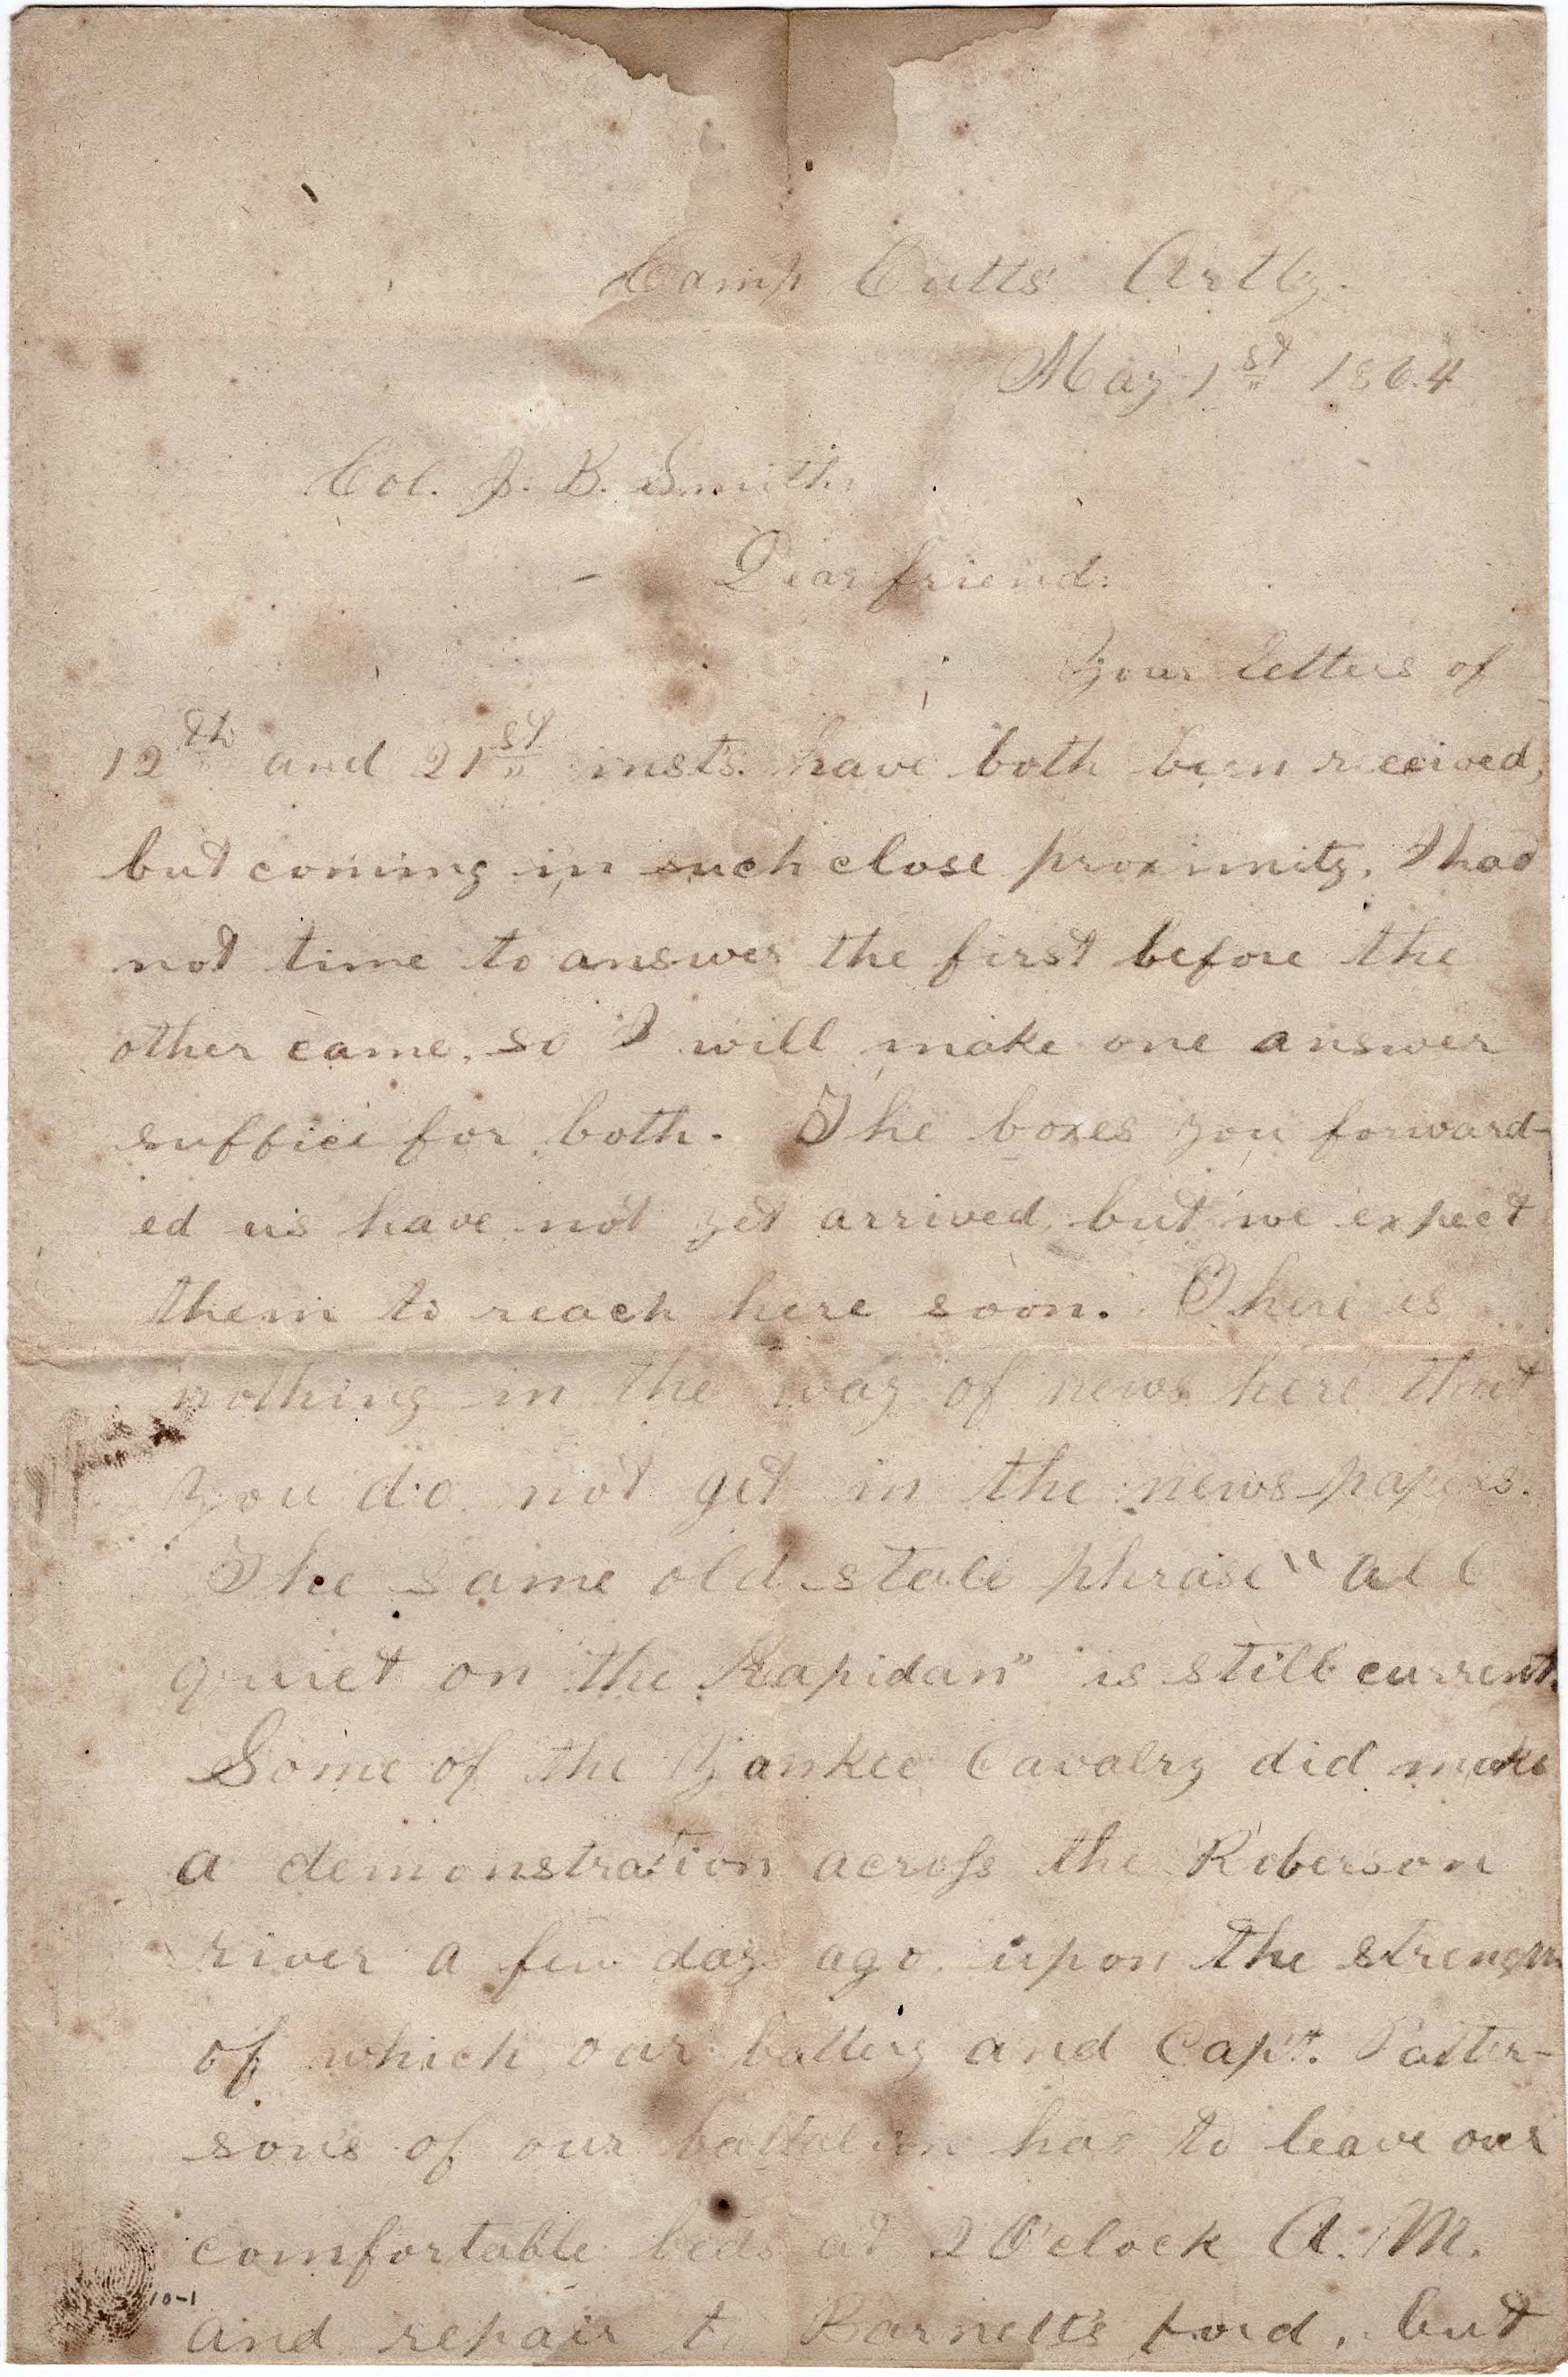 Camp Cutts' Artly.
May 1st 1864
Col. J. B. Smith,
Dear friend:
Your letters of
12th and 21st insts. have both been received,
but coming in such close proximity, I had
not time to answer the first before the
other came, so I will make one answer
suffice for both. The boxes you forward-
ed us have not yet arrived, but we expect
them to reach here soon. There is
nothing in the way of news here that
you do not get in the news-papers.
The same old stale phrase "all
quiet on the Rapidan" is still current.
Some of the Yankee Cavalry did make
a demonstration across the Roberson
river a few days ago, upon the strength
of which our battery and Capt. Patter-
son's of our battalion had to leave our
comfortable beds at 2 O'clock A.M.
and repair to Barnett's ford, but
10-1